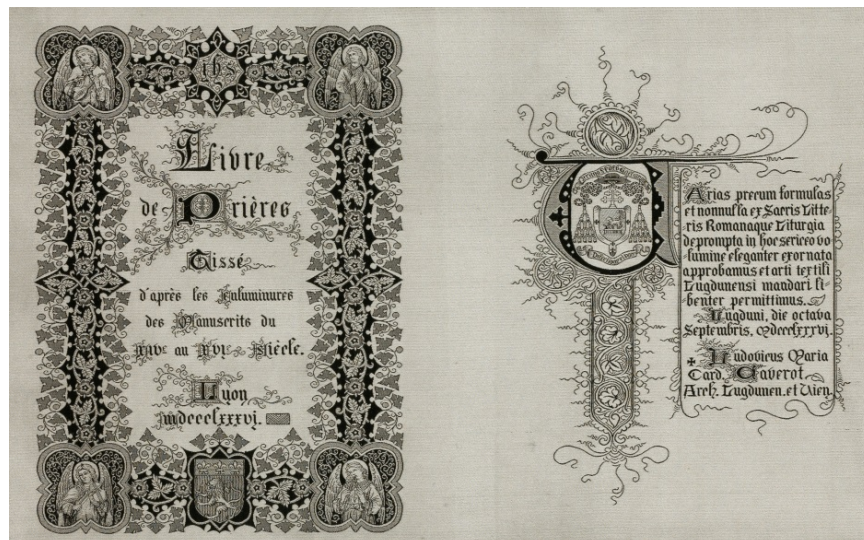 ihs
Livre
de Prières
Tissé
d'après les Enluminures
des Manuscrits du
XIVe au XVIe Siècle.
Lyon
mdccclxxxvj.
V
Arias precum formulas
et nonnulla ex Sacris Litte-
ris Romanaque Liturgia
deprompta in hoc serico vo
lumine eleganter exornata
approbamus et arti textili
Lugdunensi mandari li-
benter permittimus.
Lugduni, die octava
Septembris, mdccclxxxvj.
✠ Ludovicus Maria
Card. Caverot
Arch. Lugdunen. et Vien.